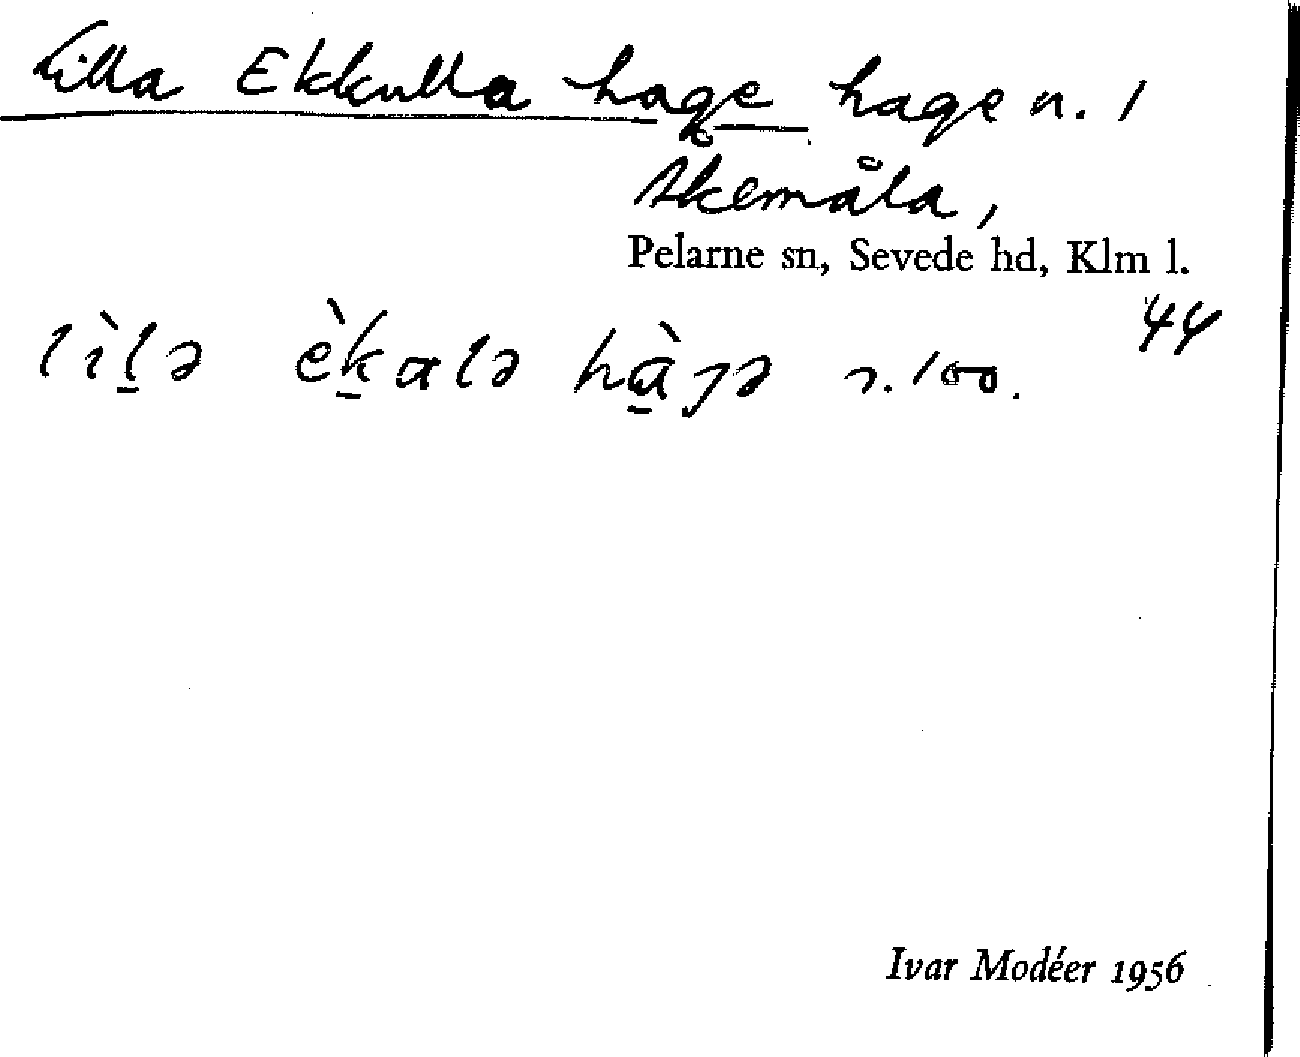 Lilla Ekkulla hage hage n. 1
Skemåla,
Pelarne sn, Sevede hd, Klm l.
44
lìl̠ə èk̠alə hà̠ɡə n. 100.
Ivar Modéer 1956